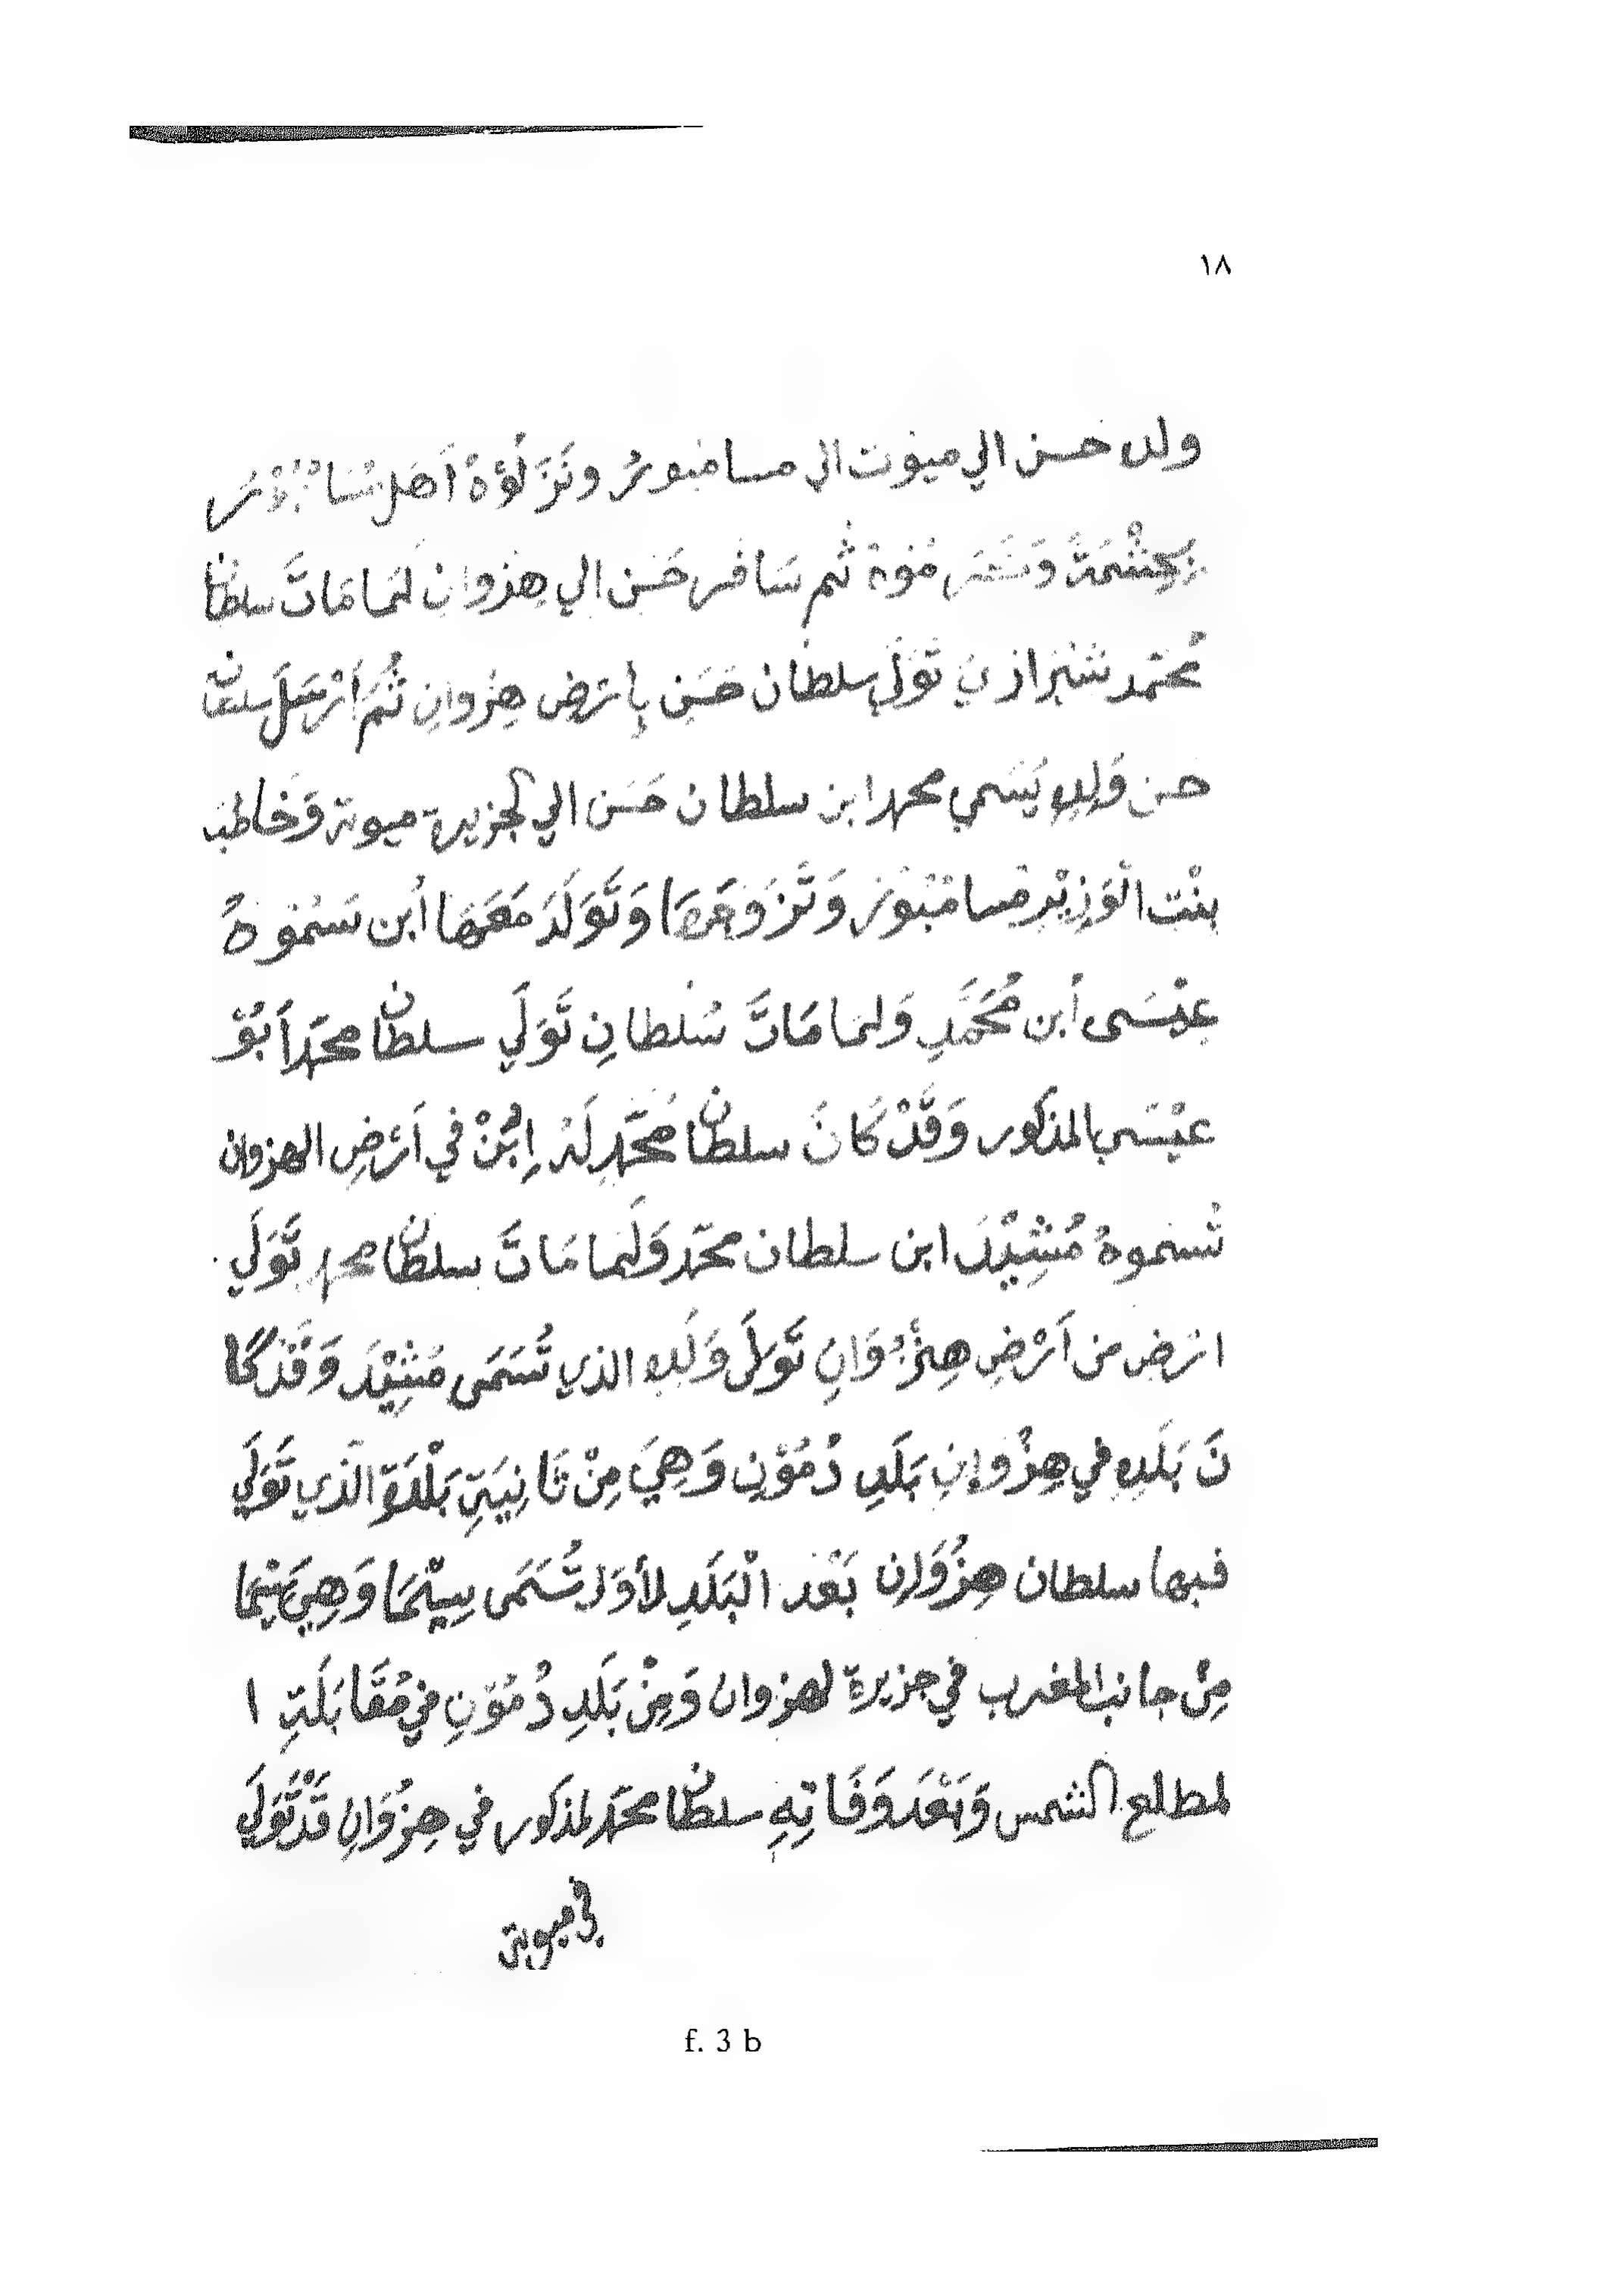 ١٨
ولد حسن الي ميوت الى مسامبورُ ونَزَلُوْهُ اَهَل مُسَامْبُوْرُ
بِحِشْمَةً وَسَمُوهْ ثُم سَافر حَسَن الي هِنزوانِ لَمَا مَاتَ سلطانْ
مُحَمّد شيْرازيْ تَوَلَي سلطان حَسَن بِارَضِ هِنزوانِ ثُمَ اَرْسَلَ سلطانْ
حسن وَلَدِهِ يَسَمي محمد ابن سلطان حَسَن الي الجزيرة ميوتة وَخَاطب
بِنْت الْوَزِيْر مسامُبْبُوْرُ وَتَزَوَجَهَا وَتَوَلَدَ مَعَهَا اُبن سَمُوهُ
عِيْسَى اُبن مُحَمَّدِ وَلما مَاتَ سُلطانِ تَوَلَي سلطانْ محَمّد اَبُوْ
عيْسَى بالمذكور وَقَدْ كَانَ سلطانْ مُحَمّدِ لَهُ اِبْنُ في اَرَضِ الهنزوان
تُسَموهُ مُشِيْدَ ابن سلطان محمّد وَلَمَا مَاتَ سلطانْ محمد تَوَلَي
ارَض من اَرْضِ هِنزُوَانِ تَوَلَى وَلَدِهِ الذي تُسَمَى مُشِيْدَ وَقَدْ كَا
نَ بَلَدِهِ في هِنزُوانِ بَلَدِ دُمُوْنِ وَهِيَ مِنْ ثَانِيَتِ بَلْدَةِ الَذي تَوَلَي
فيها سلطان هِنزُوَانِ بَعْدَ الْبَلَدِ الأوَلْ تُسَمَى سِيْمَا وَهِيَ سِيْمَا
مِنْ جانب المغرب في جزيرة لهنزوان وَمِنْ بَلَدِ دُمُوْنِ في مُقَابَلَتِ ا
لمطلع الشمس وَبَعْدَ وَفَاتِهِ سلطانْ محَمّد لمذكور في هِنزُوَانِ قَدْ تَوَلَي
في ميوتة
f. 3 b